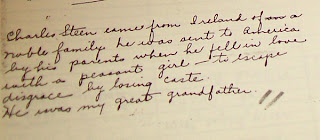 Charles Steen came from Ireland of a
noble family. he was sent to America
by his parents when he fell in love
with a peasant girl — to escape
disgrace by losing caste.
He was my great grandfather. "